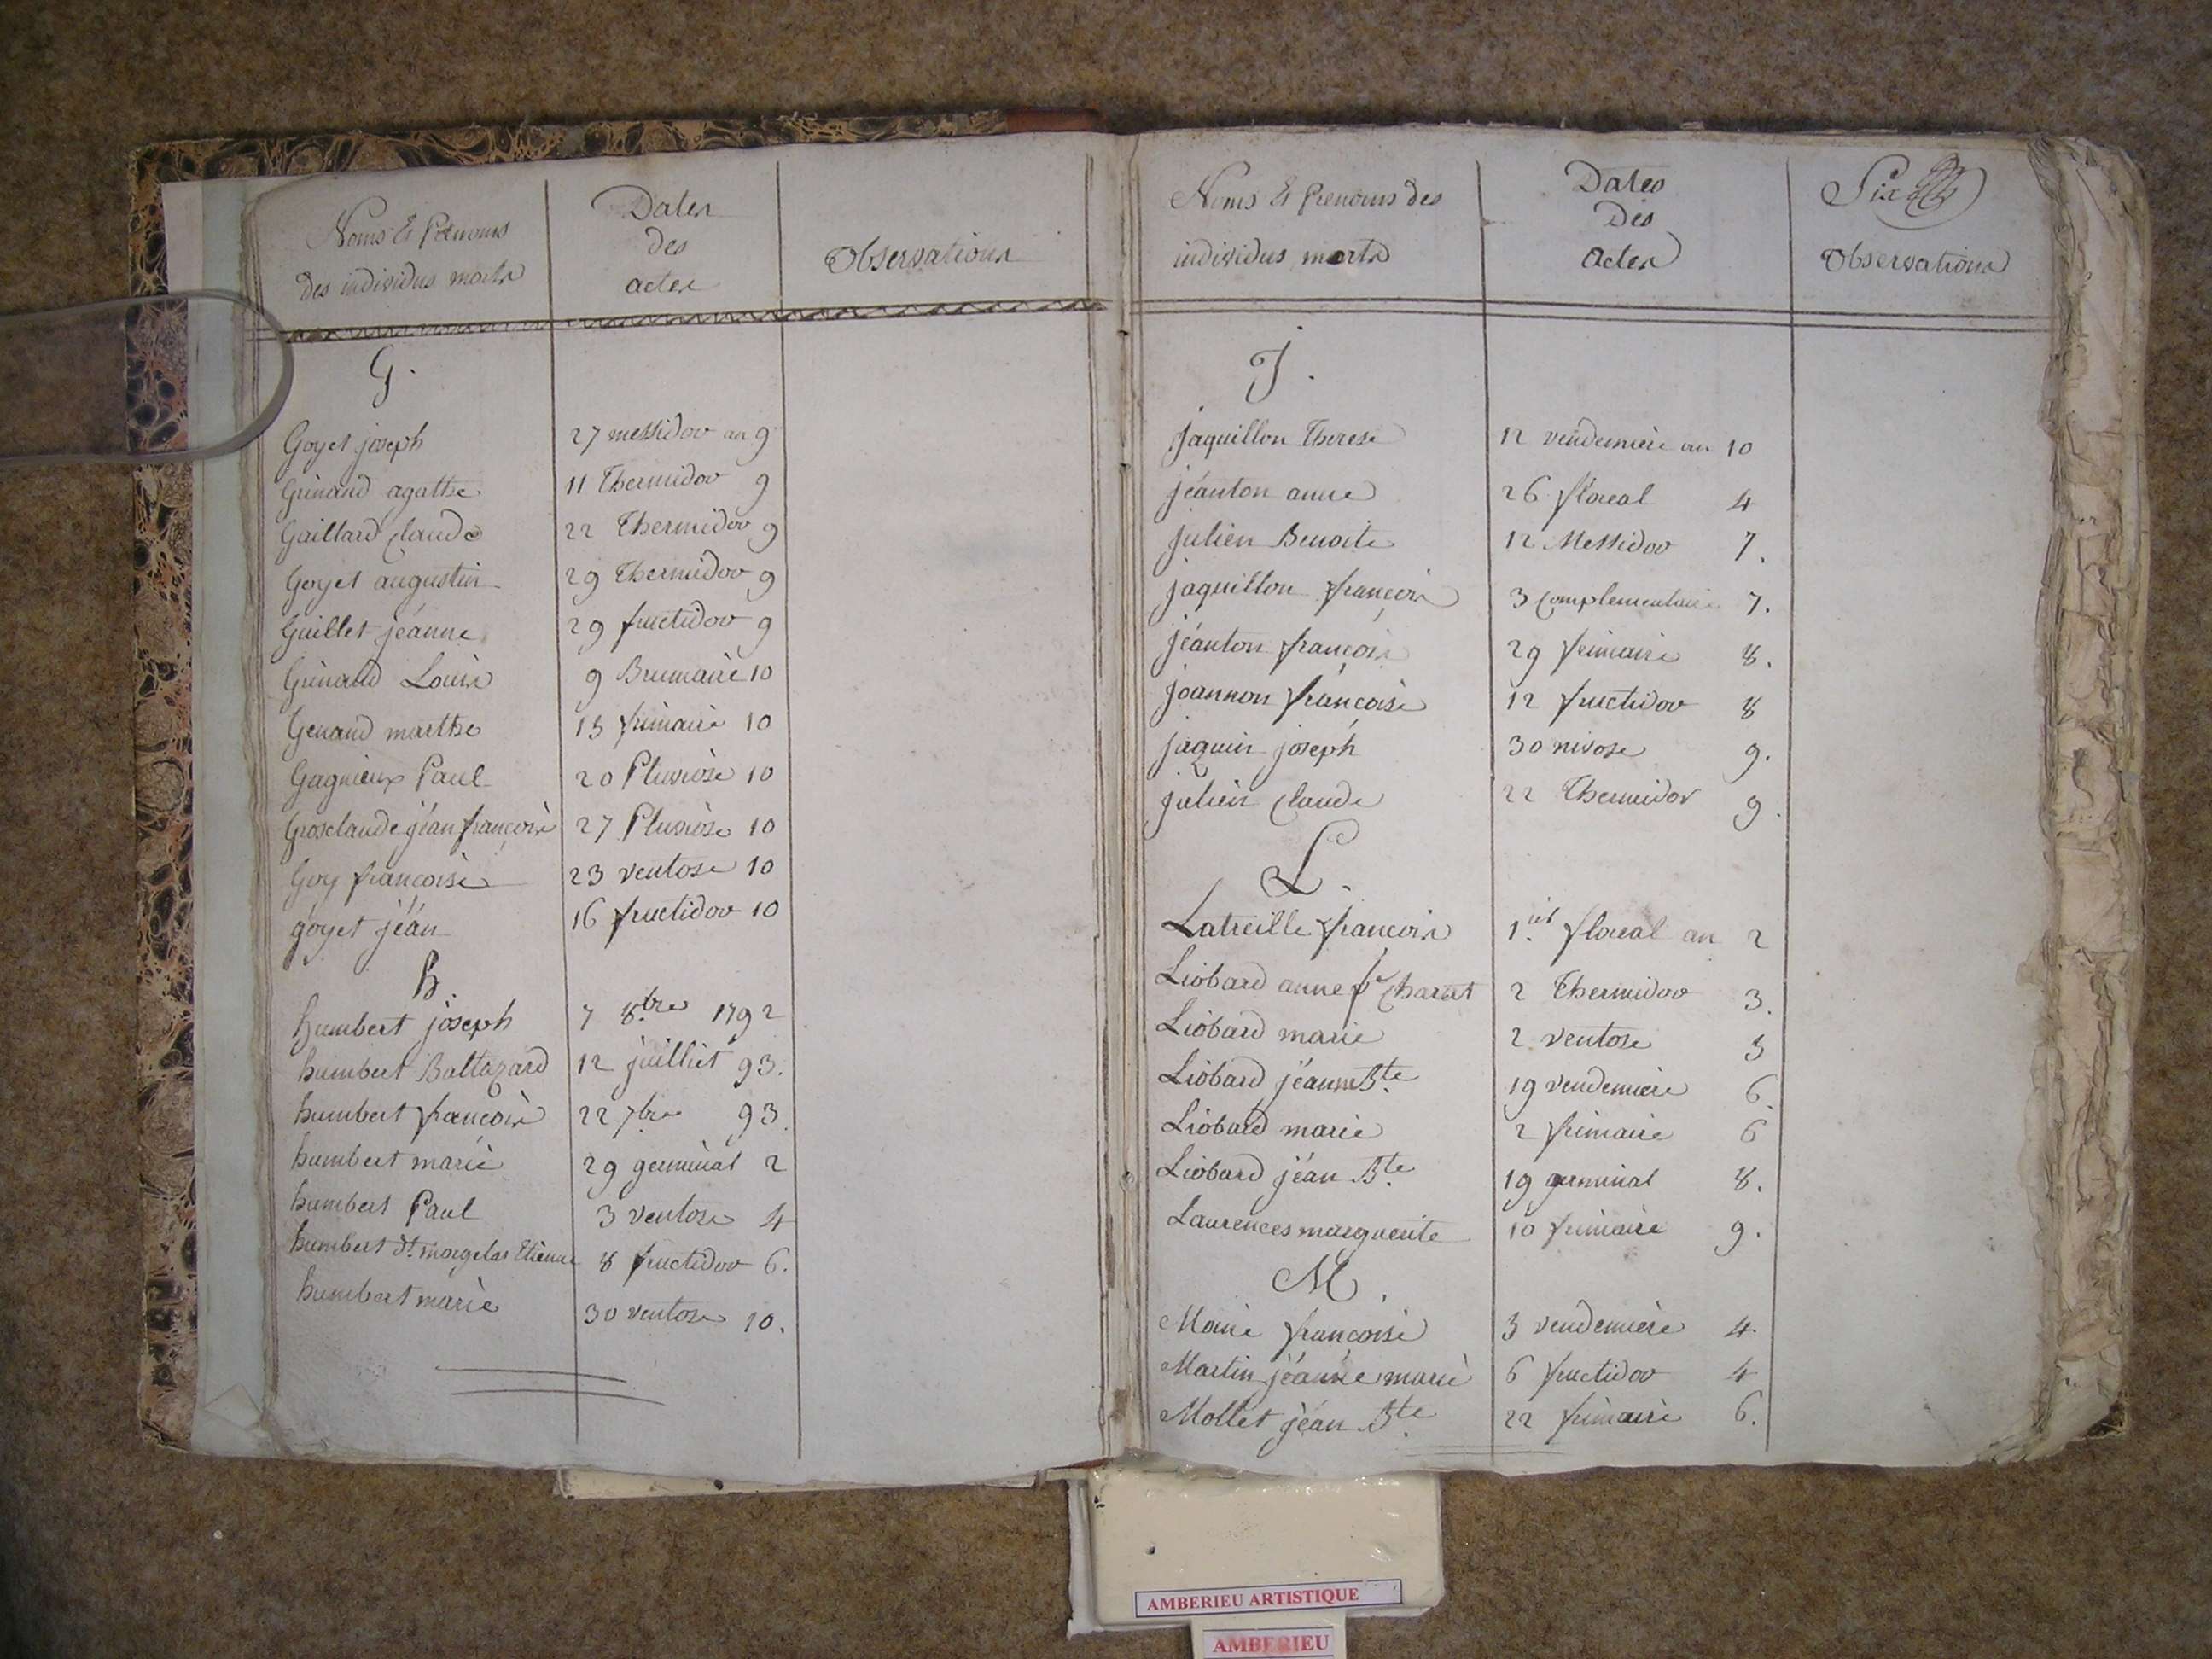 Noms Et Prénoms
des individus morts
Dates
des
actes
Observations
G.
Goyet joseph 27 messidor an 9
Grinand agathe 11 Thermidor 9
Gaillard Claude 22 Thermidor 9
Goyet augustin 29 Thermidor 9
Guillet jéanne 29 fructidor 9
Grinand Louis 9 Brumaire 10
Genand marthe 13 frimaire 10
Gagnieux Paul 20 Pluviose 10
Grosclaude jéan françois 27 Pluviose 10
Goy françoise 23 ventose 10
goyet jéan 16 fructidor 10
h.
humbert joseph 7 8.bre 1792
humbert Baltazard 12 juilliet 93.
humbert françois 22 7bre 93.
humbert marie 29 germinal 2
humbert Paul 3 ventose 4
humbert dt. morgelas Etienne 8 fructidor 6.
humbert marie 30 ventose 10.
Noms Et Prenoms des
individus morts
Dates
Des
Actes
Six
Observations
J.
jaquillon Therese 12 vendemiere an 10
jéanton anne 26 floreal 4
julien Benoite 12 Messidor 7.
jaquillon françois 3 complementaire 7.
jéanton françois 29 frimaire 8.
joannon françoise 12 fructidor 8
jaquin joseph 30 nivose 9.
julien Claude 22 Thermidor 9.
L.
Latreille françois 1.ier floreal an 2
Liobard anne fe Charat 2 Thermidor 3.
Liobard marie 2 ventose 3
Liobard jéanne Bte. 19 vendemiere 6.
Liobard marie 2 frimaire 6
Liobard jéan Bte. 19 germinal 8.
Laurences marguerite 10 frimaire 9.
M.
Moine françoise 3 vendemiere 4
Martin jéanne marie 6 fructidor 4
Mollet jéan Bte. 22 frimaire 6.
AMBERIEU ARTISTIQUE
AMBERIEU